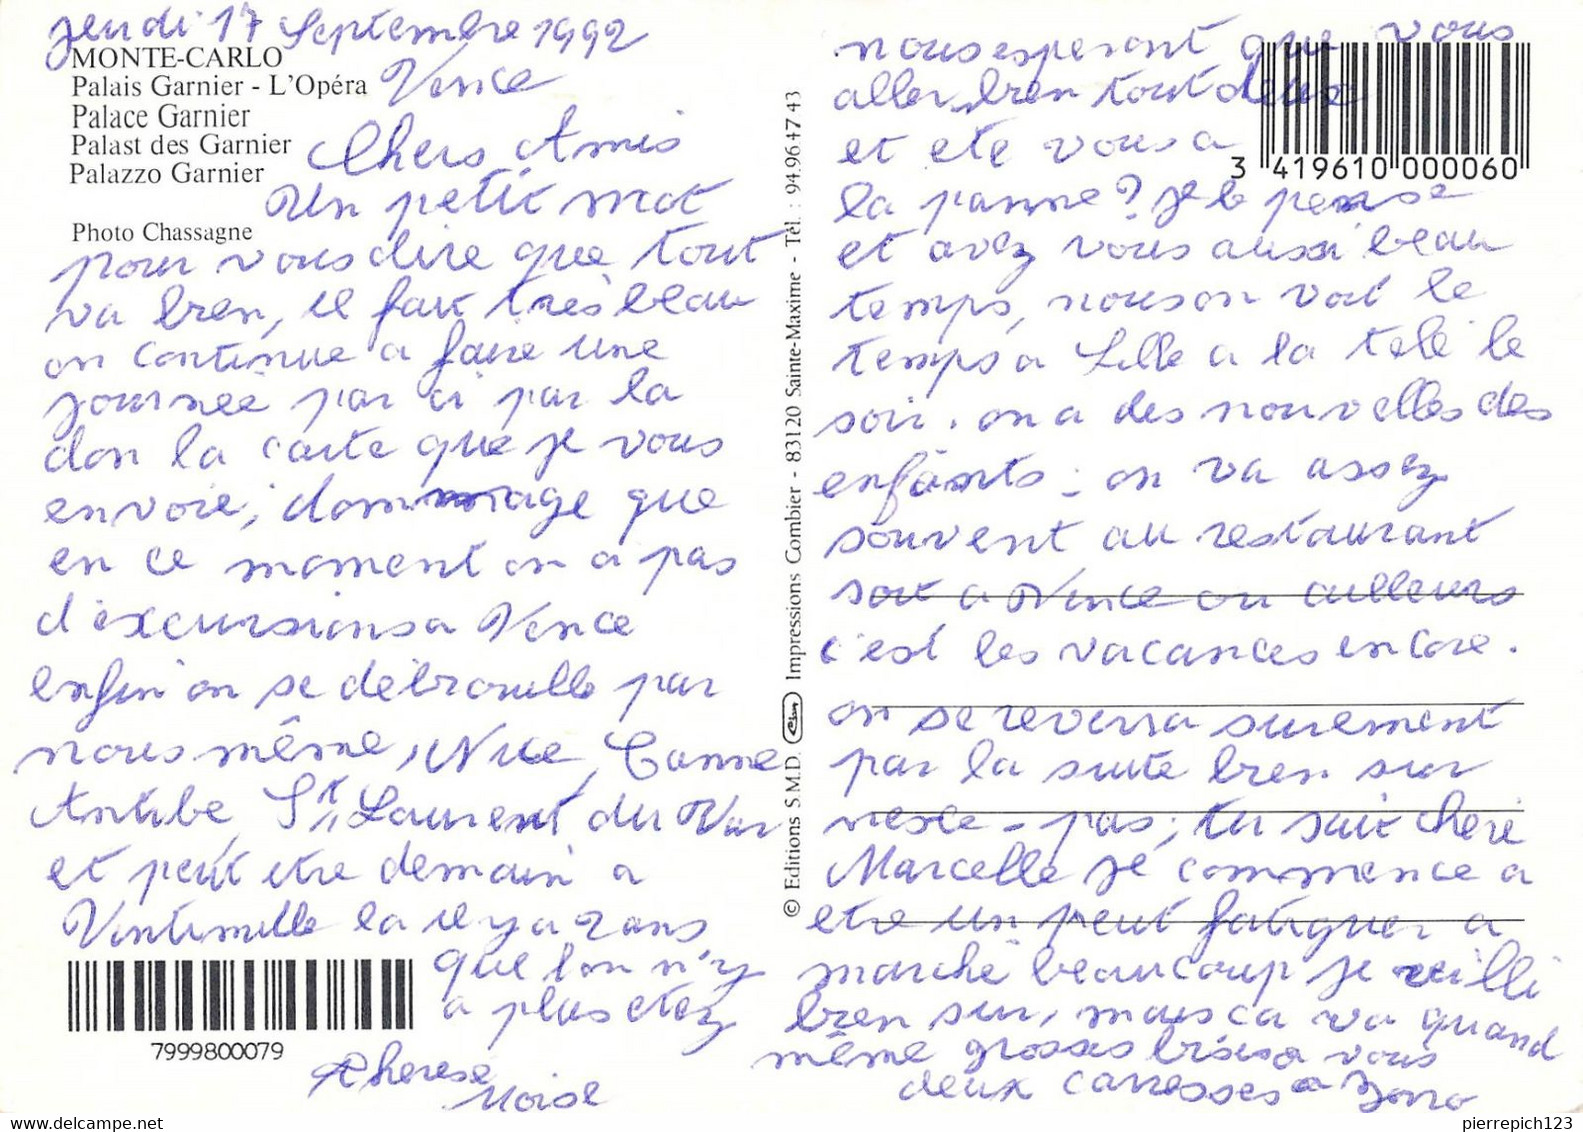 jeudi 17 Septembre 1992
MONTE-CARLO
Palais Garnier - L'Opéra
Vence
Palace Garnier
Palast des Garnier
Palazzo Garnier
Chers Amis
Un petit mot
Photo Chassagne
pour vous dire que tout
va bien, il fait très beau
on continue a faire une
journée par ci par la
don la carte que je vous
envoie, dommage que
en ce moment on a pas
d'excursions a Vence
enfin on se débrouille par
nous même, Nice, Canne
Antibe, St Laurent du Var
et peut etre demain a
Vintimille la il y a 2 ans
que l'on n'y
a plus etez
7999800079
Therese
Moise
© Editions S.M.D. Impressions Combier - 83120 Sainte-Maxime - Tél. : 94.96 47 43
nous esperont que vous
aller bien tout deux
et ete vous a
3 419610 000060
la panne? je le pense
et avez vous aussi beau
temps, nous on voit le
temps a Lille a la telé le
soir. on a des nouvelles des
enfants - on va assez
souvent au restaurant
soit a Vence ou ailleurs
c'est les vacances encore.
on se reverra surement
par la suite bien sur
nesce - pas, tu sait chere
Marcelle je commence a
etre un peut fatiguer a
marché beaucoup je veilli
bien sur, mais ca va quand
même grosses bises a vous
deux caresses a
pierrepich123